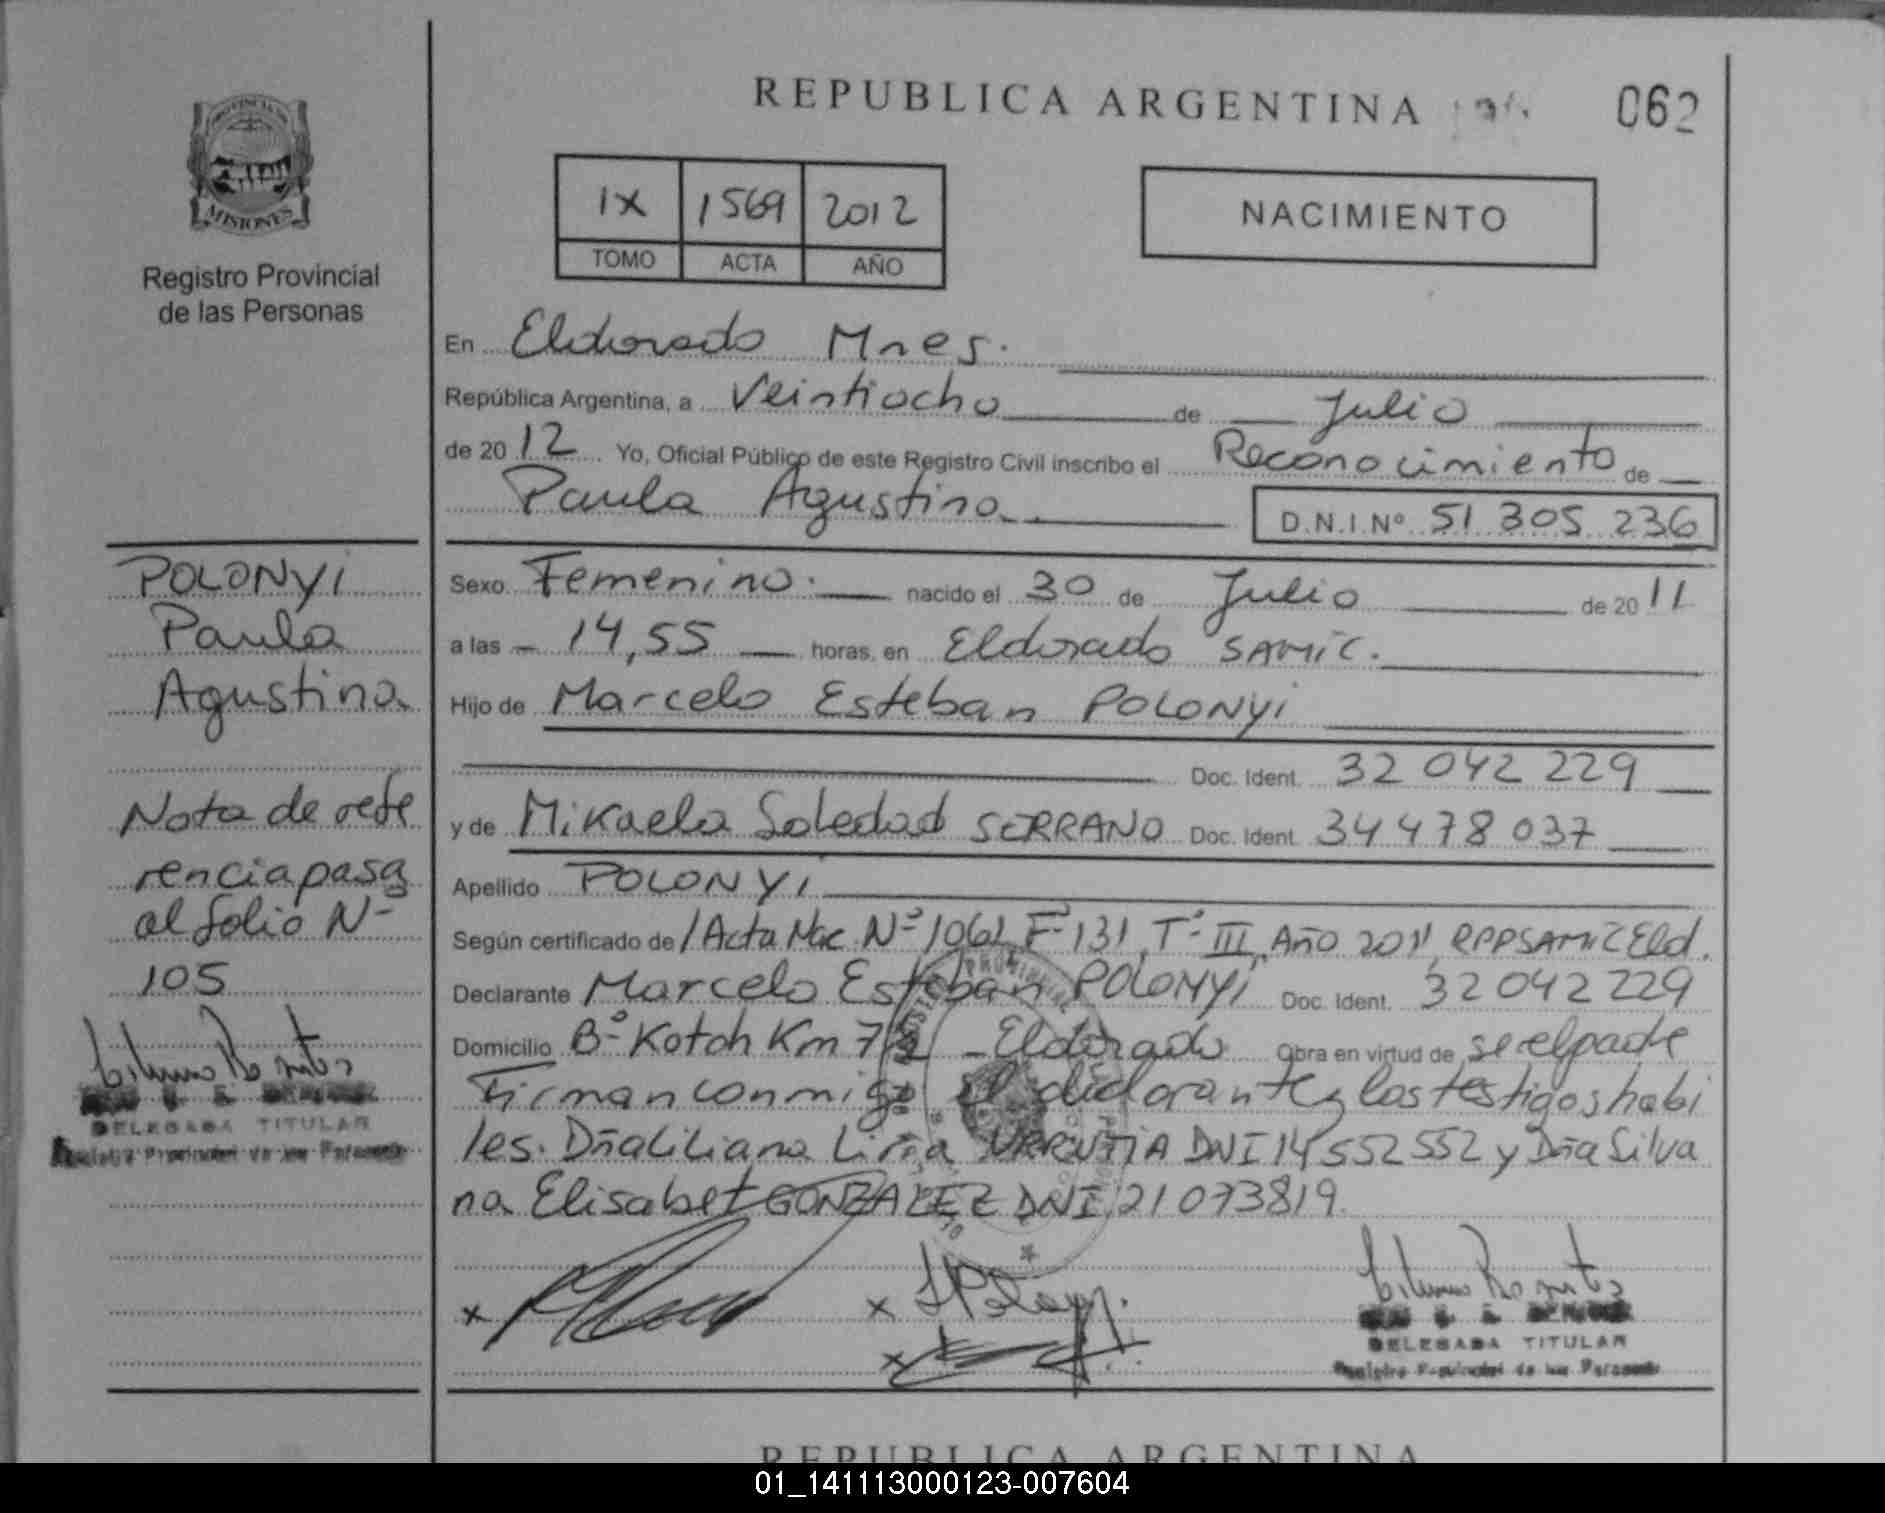 REPUBLICA ARGENTINA
062
PROVINCIA
MISIONES
Registro Provincial
de las Personas
IX 1569 2012
TOMO ACTA AÑO
NACIMIENTO
En Eldorado Mnes.
República Argentina, a Veintiocho de Julio
de 2012 Yo, Oficial Público de este Registro Civil inscribo el Reconocimiento de
Paula Agustina
D.N.I.Nº 51 305 236
Sexo Femenino. nacido el 30 de Julio de 2011
a las 14,55 horas, en Eldorado SAMIC.
Hijo de Marcelo Esteban POLONYi
Doc. Ident. 32 042 229
y de Mikaela Soledad SERRANO Doc. Ident. 34 478 037
Apellido POLONYi
Según certificado de Acta Nac Nº 1061 Fº 131 Tº III Año 2011 RPPSAMIC Eld.
Declarante Marcelo Esteban POLONYi Doc. Ident. 32 042 229
Domicilio Bº Kotch Km 7 Eldorado Obra en virtud de ser el padre
Firman conmigo el declarante y los testigos habi
les. Dña Liliana Liria URRUTIA DNI 14 552 552 y Dña Silva
na Elisabet GONZALEZ DNI 21 073819.
POLONYi
Paula
Agustina
Nota de refe
rencia pasa
al folio Nº
105
DELEGADA TITULAR
Registro Provincial de las Personas
x x
x
DELEGADA TITULAR
Registro Provincial de las Personas
REPUBLICA ARGENTINA
01_141113000123-007604